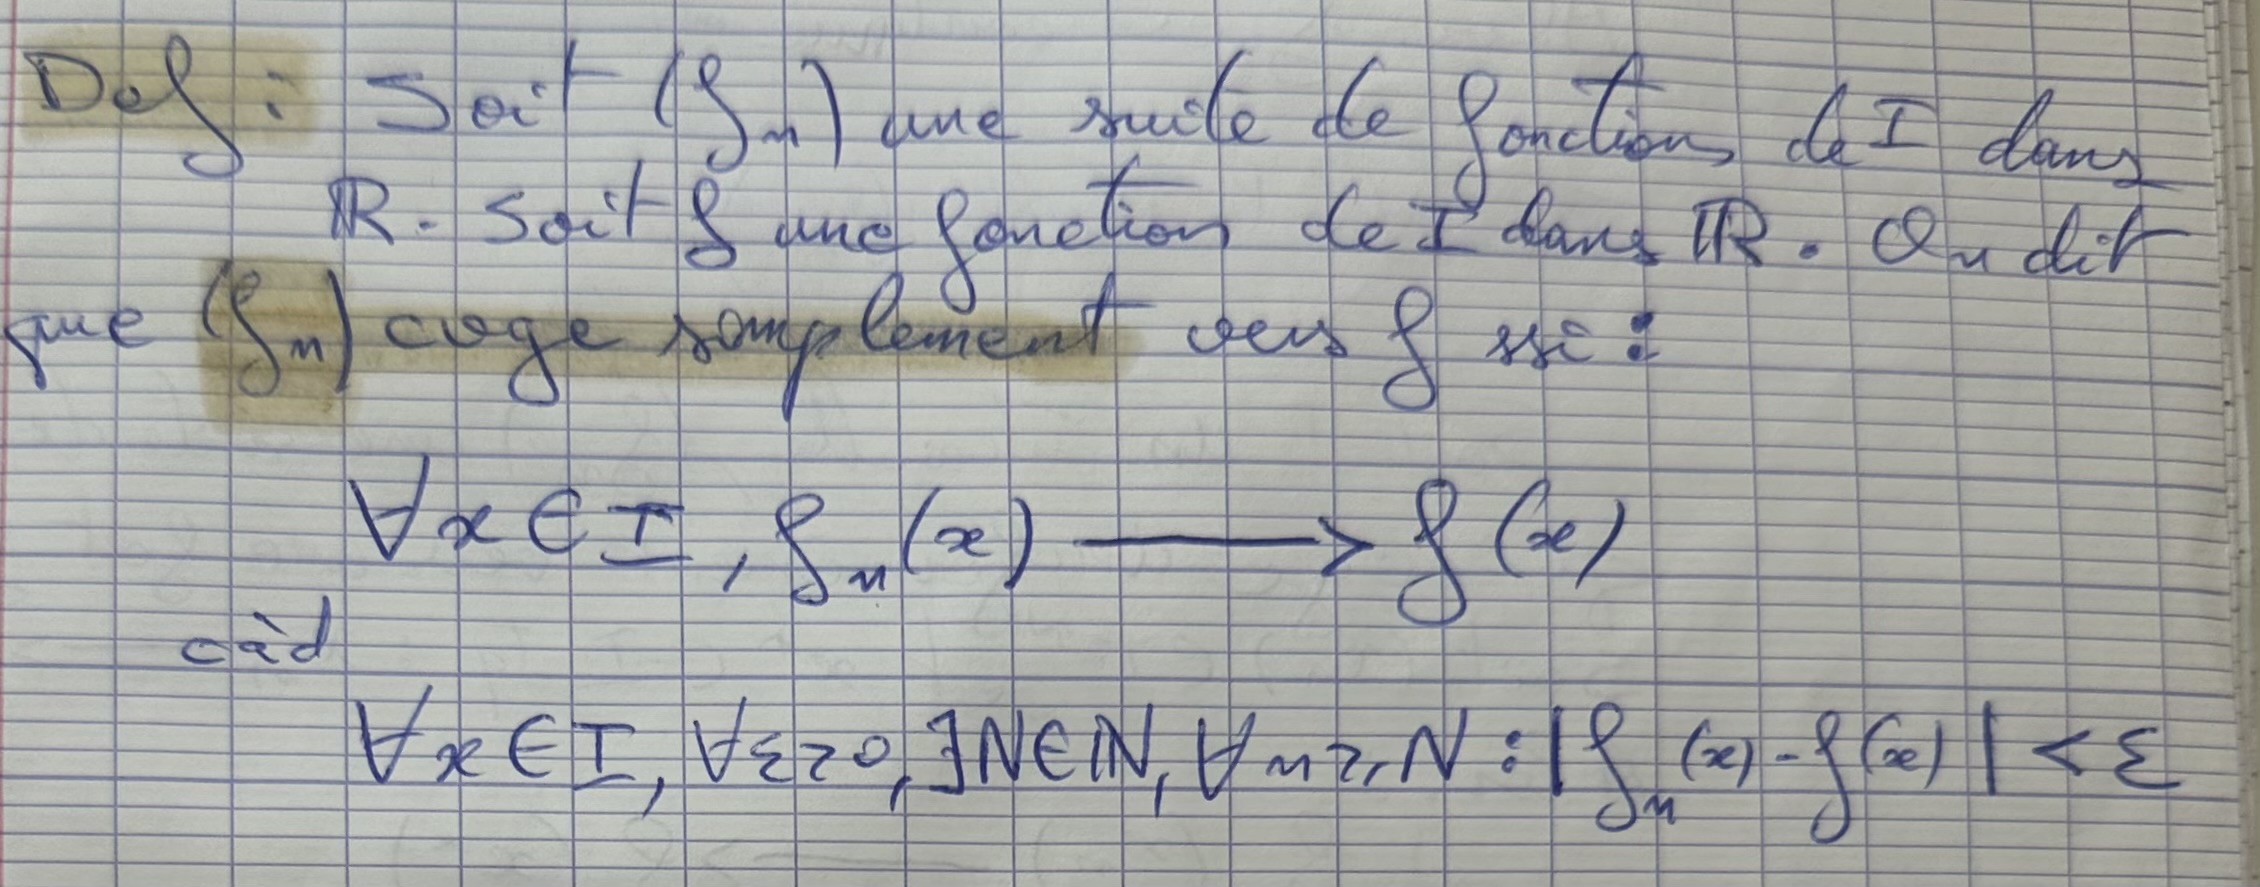 Def : Soit (fn) une suite de fonctions de I dans
ℝ. Soit f une fonction de I dans ℝ. On dit
que (fn) cvge simplement vers f ssi :
∀x ∈ I, fn(x) ⟶ f(x)
càd
∀x ∈ I, ∀ε>0, ∃N∈ℕ, ∀n≥N : |fn(x) - f(x)| < ε